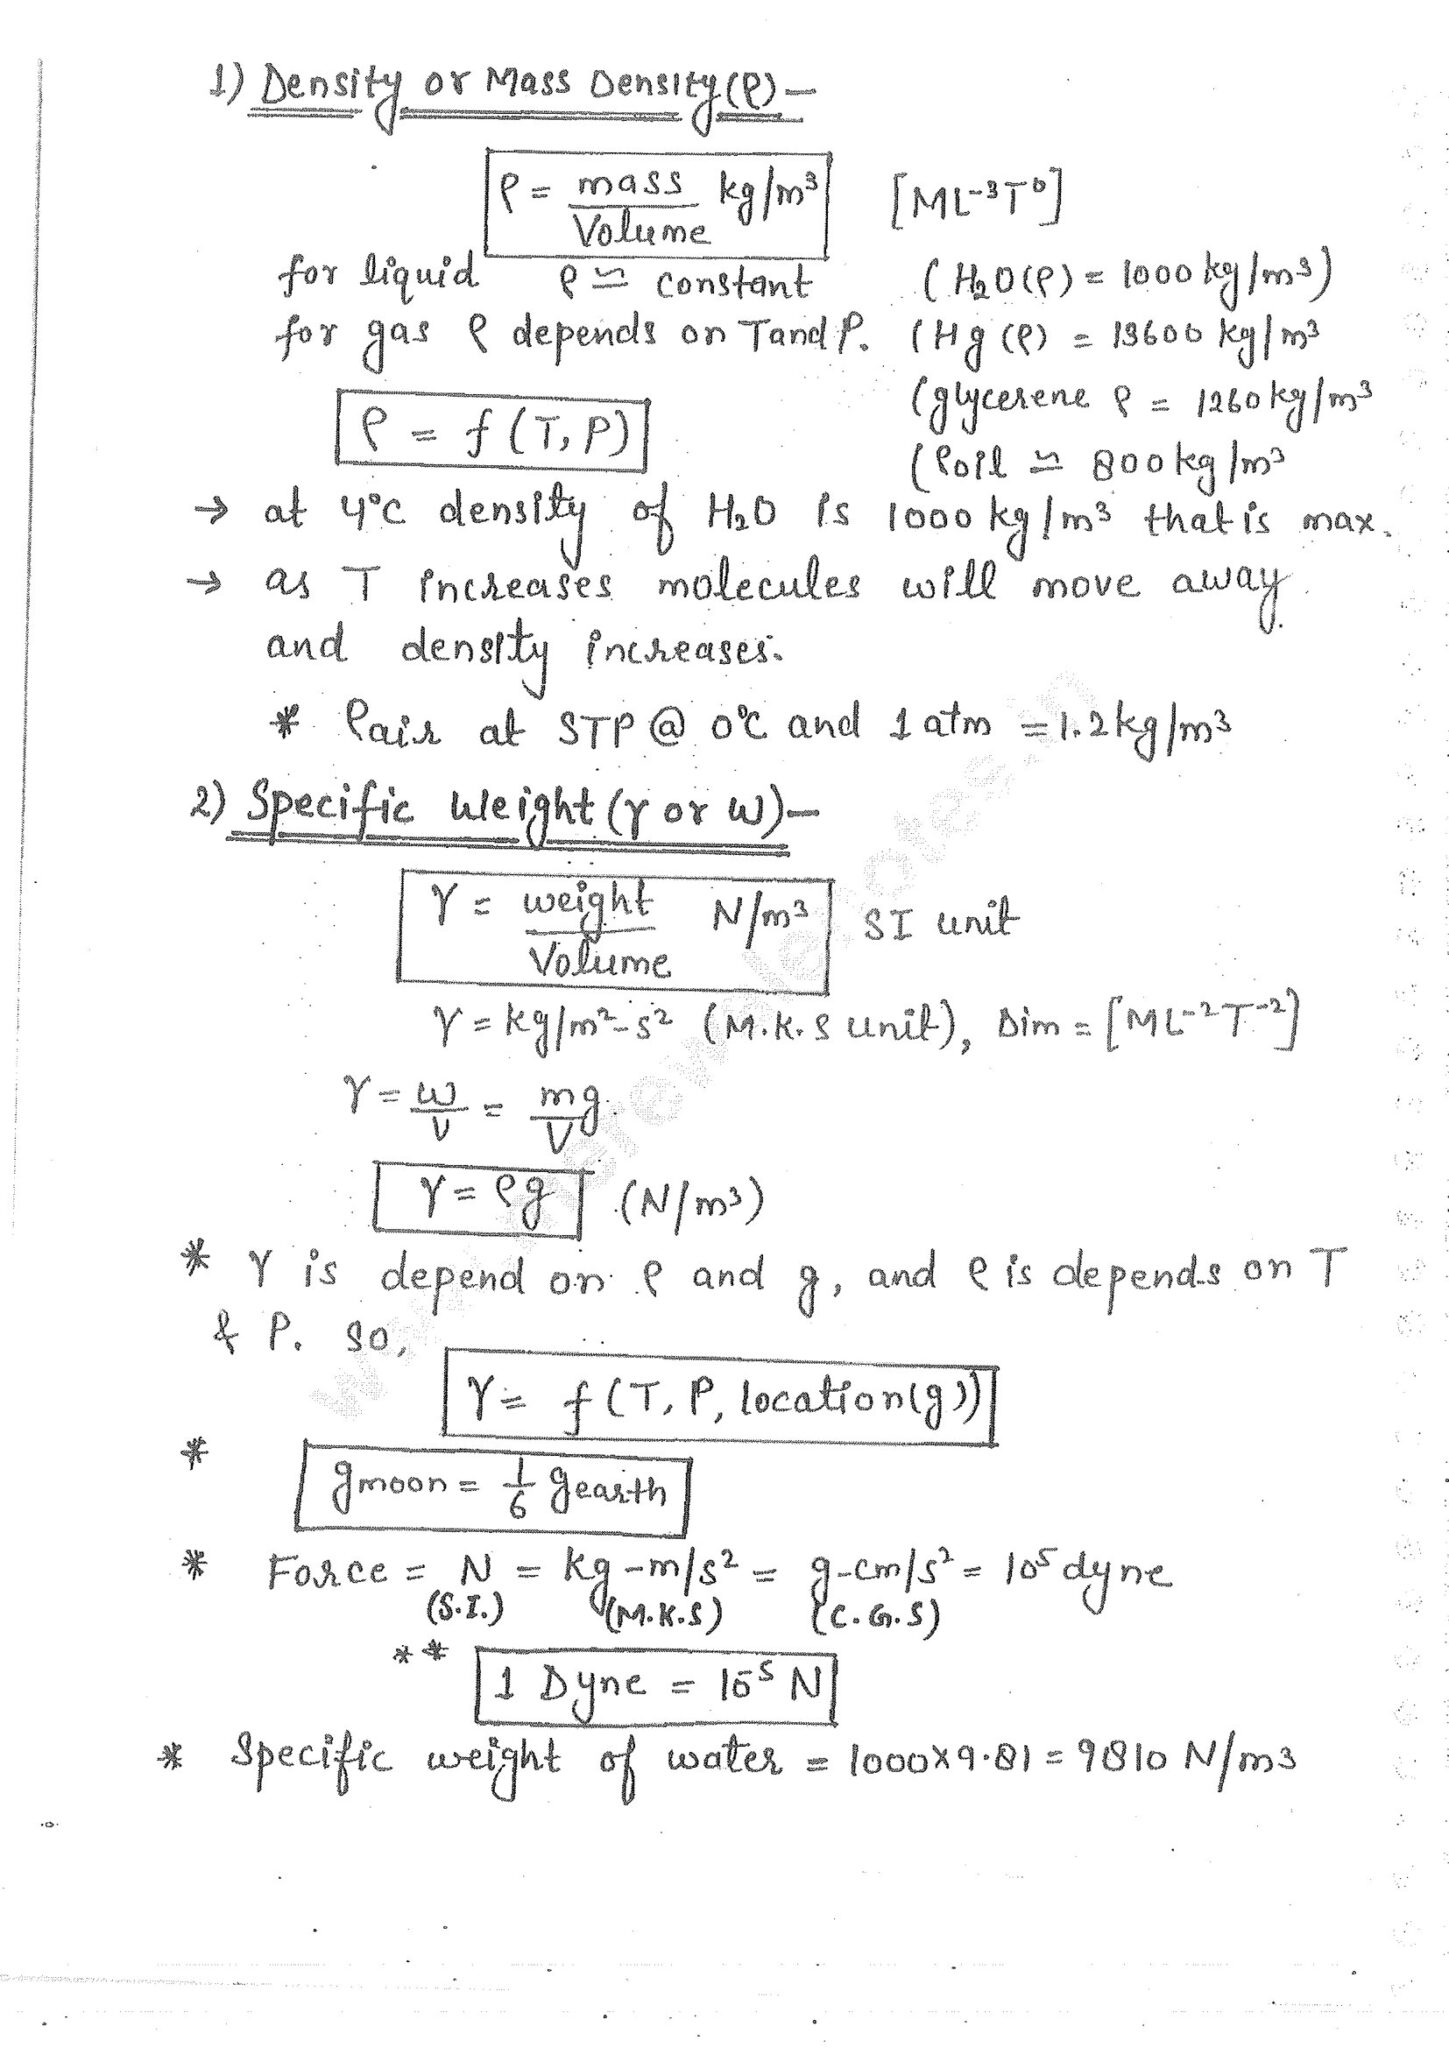 1) Density or Mass Density (ρ) –
ρ = mass/Volume kg/m³ [ML⁻³T⁰]
for liquid ρ ≃ constant (H₂O(ρ) = 1000 kg/m³)
for gas ρ depends on T and P. (Hg (ρ) = 13600 kg/m³
ρ = f (T, P) (glycerene ρ = 1260 kg/m³
(ρoil ≃ 800 kg/m³
→ at 4°C density of H₂O is 1000 kg/m³ that is max.
→ as T increases molecules will move away
and density increases.
* ρair at STP @ 0°C and 1 atm = 1.2 kg/m³
2) Specific Weight (γ or w) –
γ = weight/Volume N/m³ SI unit
γ = kg/m²-s² (M.K.S unit), Dim = [ML⁻²T⁻²]
γ = w/V = mg/V
γ = ρg (N/m³)
* γ is depend on ρ and g, and ρ is depends on T
& P. so,
γ = f (T, P, location(g))
* gmoon = 1/6 gearth
* Force = N = kg-m/s² = g-cm/s² = 10⁵ dyne
(S.I.) (M.K.S) (C.G.S)
** 1 Dyne = 10⁻⁵ N
* Specific weight of water = 1000×9.81 = 9810 N/m3